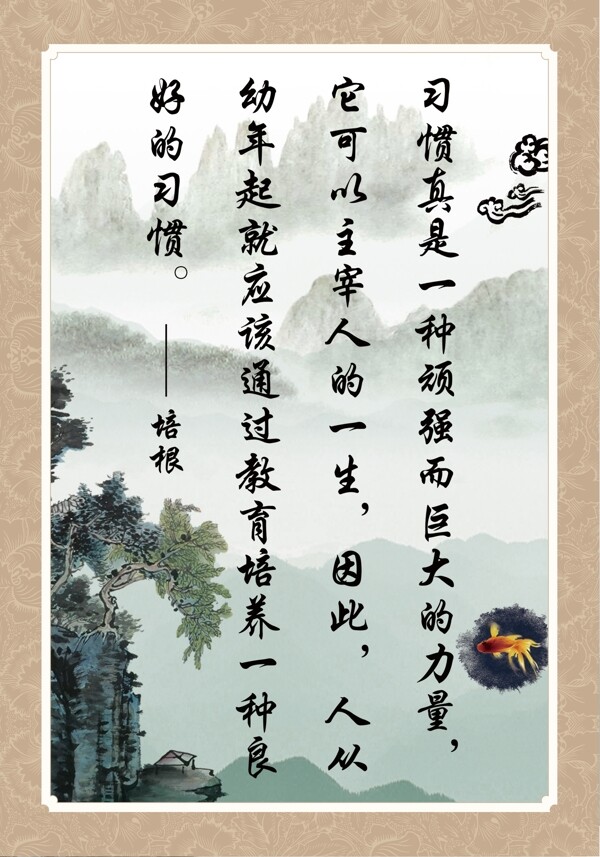 习惯真是一种顽强而巨大的力量，
它可以主宰人的一生，因此，人从
幼年起就应该通过教育培养一种良
好的习惯。——培根